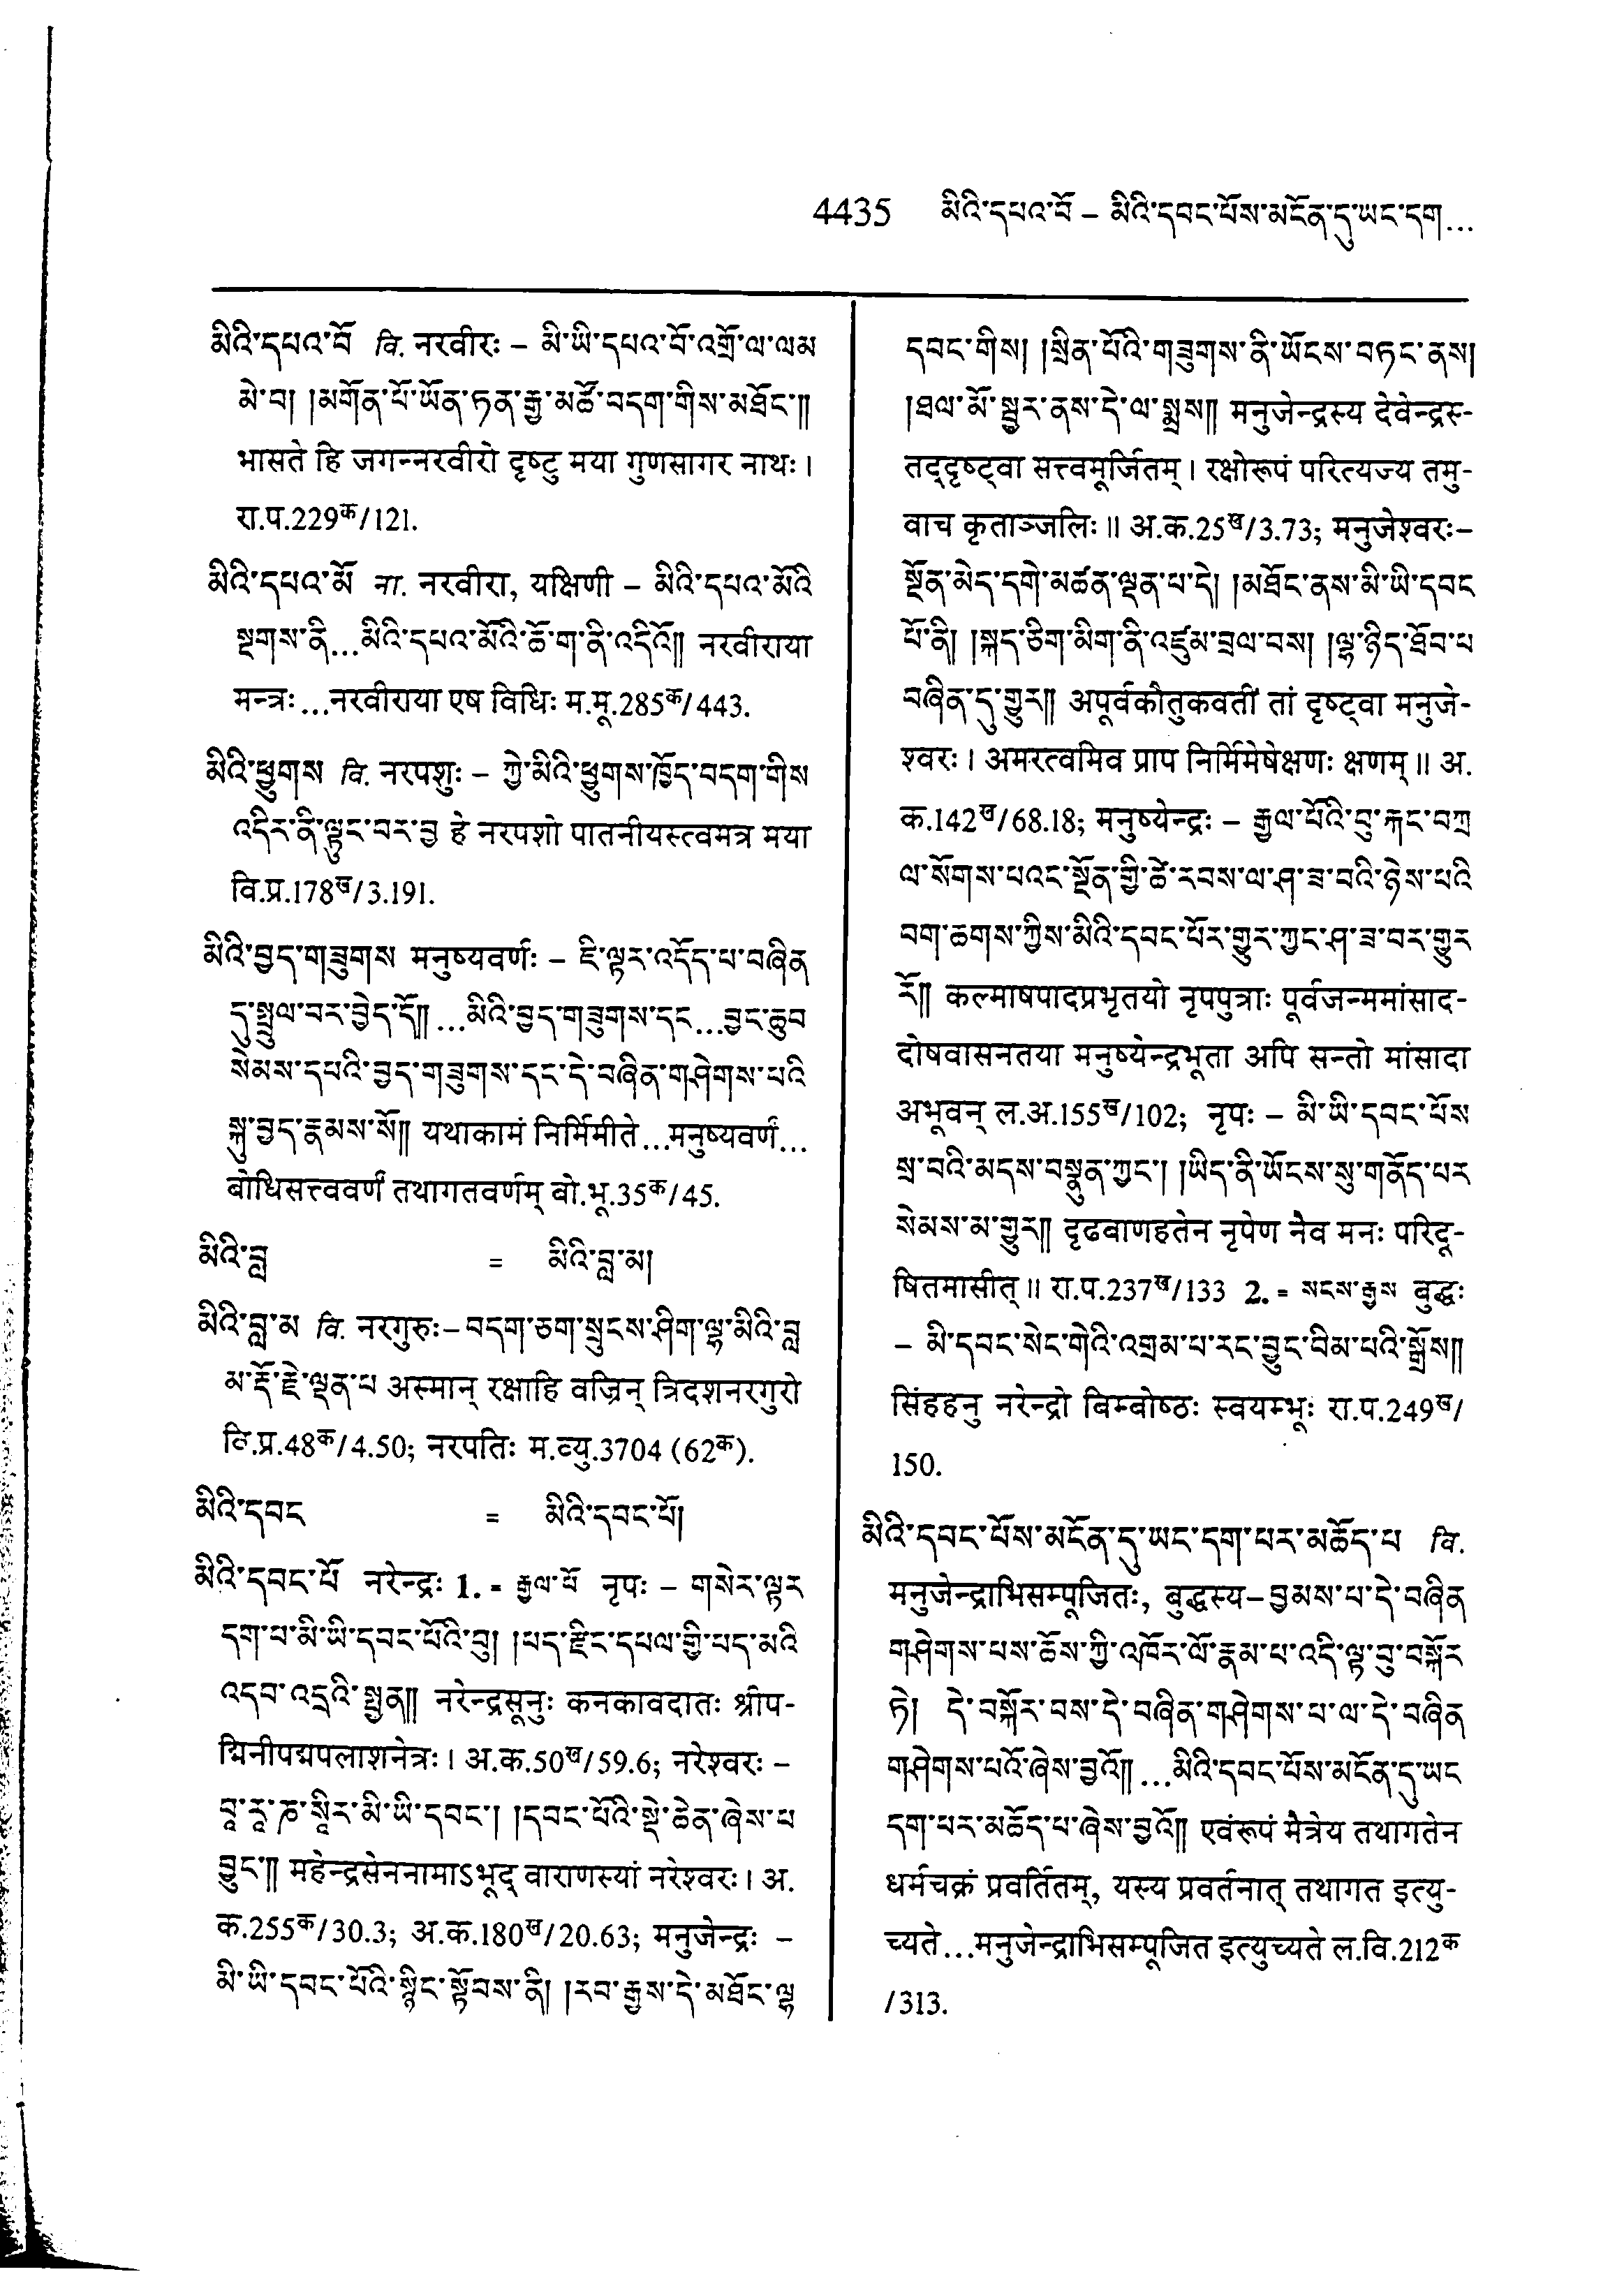 4435 མིའི་དཔའ་བོ – མིའི་དབང་པོས་མངོན་དུ་ཡང་དག...
མིའི་དཔའ་བོ वि. नरवीरः – མི་ཡི་དཔའ་བོ་འགྲོ་ལ་ལམ
མེ་བ། །མགོན་པོ་ཡོན་ཏན་རྒྱ་མཚོ་བདག་གིས་མཐོང་༎
भासते हि जगन्नरवीरो दृष्टु मया गुणसागर नाथः ।
रा.प.229क/121.
མིའི་དཔའ་མོ ना. नरवीरा, यक्षिणी – མིའི་དཔའ་མོའི
སྔགས་ནི...མིའི་དཔའ་མོའི་ཆོ་ག་ནི་འདིའོ༎ नरवीराया
मन्त्रः...नरवीराया एष विधिः म.मू.285क/443.
མིའི་ཕྱུགས वि. नरपशुः – ཀྱེ་མིའི་ཕྱུགས་ཁྱོད་བདག་གིས
འདིར་ནི་ལྟུང་བར་བྱ हे नरपशो पातनीयस्त्वमत्र मया
वि.प्र.178ख/3.191.
མིའི་བྱད་གཟུགས मनुष्यवर्णः – ཇི་ལྟར་འདོད་པ་བཞིན
དུ་སྤྲུལ་བར་བྱེད་དོ༎...མིའི་བྱད་གཟུགས་དང...བྱང་ཆུབ
སེམས་དཔའི་བྱད་གཟུགས་དང་དེ་བཞིན་གཤེགས་པའི
སྐུ་བྱད་རྣམས་སོ༎ यथाकामं निर्मिमीते...मनुष्यवर्णं...
बोधिसत्त्ववर्णं तथागतवर्णम् बो.भू.35क/45.
མིའི་བླ = མིའི་བླ་མ།
མིའི་བླ་མ वि. नरगुरुः – བདག་ཅག་སྲུངས་ཤིག་ལྷ་མིའི་བླ
མ་རྡོ་རྗེ་ལྡན་པ अस्मान् रक्षाहि वज्रिन् त्रिदशनरगुरो
वि.प्र.48क/4.50; नरपतिः म.व्यु.3704 (62क).
མིའི་དབང = མིའི་དབང་པོ།
མིའི་དབང་པོ नरेन्द्रः 1. = རྒྱལ་པོ नृपः – གསེར་ལྟར
དག་པ་མི་ཡི་དབང་པོའི་བུ། །པད་རྫིང་དཔལ་གྱི་པད་མའི
འདབ་འདྲའི་སྤྱན༎ नरेन्द्रसूनुः कनकावदातः श्रीप-
द्मिनीपद्मपलाशनेत्रः । अ.क.50ख/59.6; नरेश्वरः –
བཱ་རཱ་ཎ་སཱིར་མི་ཡི་དབང་། །དབང་པོའི་སྡེ་ཆེན་ཞེས་པ
བྱུང་༎ महेन्द्रसेननामाऽभूद् वाराणस्यां नरेश्वरः । अ.
क.255क/30.3; अ.क.180ख/20.63; मनुजेन्द्रः –
མི་ཡི་དབང་པོའི་སྙིང་སྟོབས་ནི། །རབ་རྒྱས་དེ་མཐོང་ལྷ
དབང་གིས། །སྲིན་པོའི་གཟུགས་ནི་ཡོངས་བཏང་ནས།
།ཐལ་མོ་སྦྱར་ནས་དེ་ལ་སྨྲས༎ मनुजेन्द्रस्य देवेन्द्रस्-
तद्दृष्ट्वा सत्त्वमूर्जितम् । रक्षोरूपं परित्यज्य तमु-
वाच कृताञ्जलिः ॥ अ.क.25ख/3.73; मनुजेश्वरः–
སྔོན་མེད་དགེ་མཚན་ལྡན་པ་དེ། །མཐོང་ནས་མི་ཡི་དབང
པོ་ནི། །སྐད་ཅིག་མིག་ནི་འཛུམ་བྲལ་བས། །ལྷ་ཉིད་ཐོབ་པ
བཞིན་དུ་གྱུར༎ अपूर्वकौतुकवतीं तां दृष्ट्वा मनुजे-
श्वरः । अमरत्वमिव प्राप निर्मिमेषेक्षणः क्षणम् ॥ अ.
क.142ख/68.18; मनुष्येन्द्रः – རྒྱལ་པོའི་བུ་རྐང་བཀྲ
ལ་སོགས་པའང་སྔོན་གྱི་ཚེ་རབས་ལ་ཤ་ཟ་བའི་ཉེས་པའི
བག་ཆགས་ཀྱིས་མིའི་དབང་པོར་གྱུར་ཀྱང་ཤ་ཟ་བར་གྱུར
རོ༎ कल्माषपादप्रभृतयो नृपपुत्राः पूर्वजन्ममांसाद-
दोषवासनतया मनुष्येन्द्रभूता अपि सन्तो मांसादा
अभूवन् ल.अ.155ख/102; नृपः – མི་ཡི་དབང་པོས
སྲ་བའི་མདས་བསྣུན་ཀྱང་། །ཡིད་ནི་ཡོངས་སུ་གནོད་པར
སེམས་མ་གྱུར༎ दृढबाणहतेन नृपेण नैव मनः परिदू-
षितमासीत् ॥ रा.प.237ख/133 2. = སངས་རྒྱས बुद्धः
– མི་དབང་སེང་གེའི་འགྲམ་པ་རང་བྱུང་བིམ་པའི་སྒྲོས༎
सिंहहनु नरेन्द्रो बिम्बोष्ठः स्वयम्भूः रा.प.249ख/
150.
མིའི་དབང་པོས་མངོན་དུ་ཡང་དག་པར་མཆོད་པ वि.
मनुजेन्द्राभिसम्पूजितः, बुद्धस्य – བྱམས་པ་དེ་བཞིན
གཤེགས་པས་ཆོས་ཀྱི་འཁོར་ལོ་རྣམ་པ་འདི་ལྟ་བུ་བསྐོར
ཏེ། དེ་བསྐོར་བས་དེ་བཞིན་གཤེགས་པ་ལ་དེ་བཞིན
གཤེགས་པའོ་ཞེས་བྱའོ༎...མིའི་དབང་པོས་མངོན་དུ་ཡང
དག་པར་མཆོད་པ་ཞེས་བྱའོ༎ एवंरूपं मैत्रेय तथागतेन
धर्मचक्रं प्रवर्तितम्, यस्य प्रवर्तनात् तथागत इत्यु-
च्यते...मनुजेन्द्राभिसम्पूजित इत्युच्यते ल.वि.212क
/313.